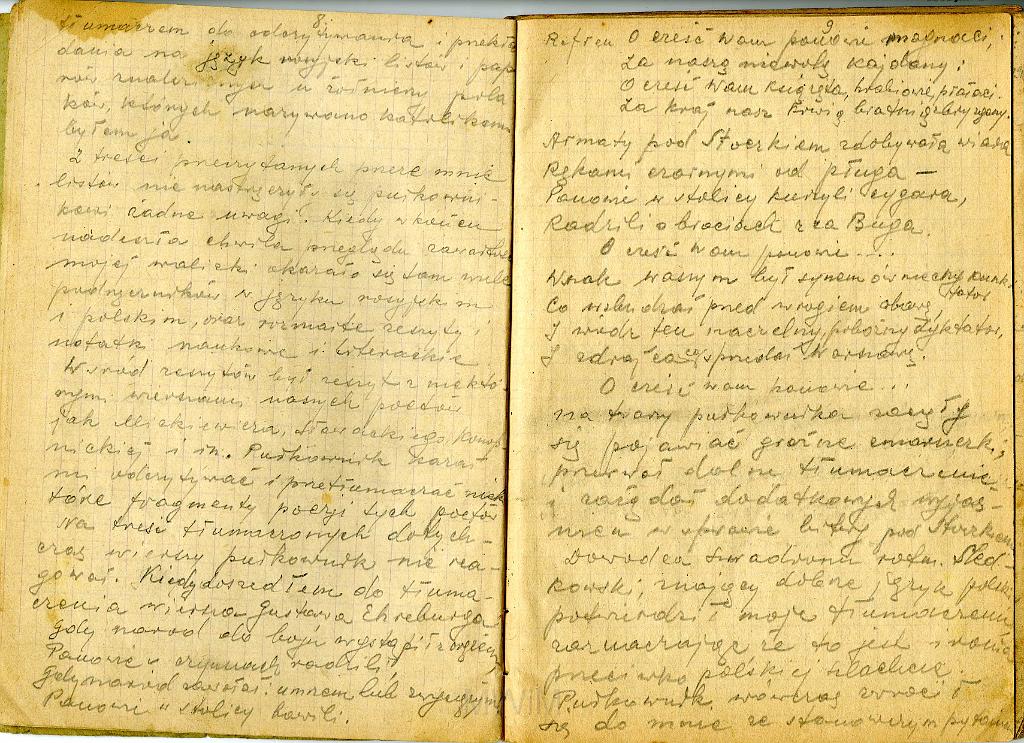 8.
tłumaczem do odczytywania i przekła
dania na język rosyjski listów i papie
rów znalezionych u żołnierzy pola
ków, których nazywano katolikami
byłem ja
Z treści przeczytanych przeze mnie
listów nie nastręczyły się pułkowni-
kowi żadne uwagi. Kiedy w końcu
nadeszła chwila przeglądu zawartości
mojej walizki okazało się tam wiele
podręczników w języku rosyjskim
i polskim, oraz rozmaite zeszyty i
notatki naukowe i literackie
Wśród zeszytów był zeszyt z niektó-
rymi wierszami naszych poetów
jak Mickiewicza, Słowackiego, Konop
nickiej i in. Pułkownik kazał
mi odczytywać i przetłumaczać niek
tóre fragmenty poezji tych poetów
Na treść tłumaczonych dotych-
czas wierszy pułkownik nie rea-
gował. Kiedy doszedłem do tłuma-
czenia wiersza Gustawa Ehreburga
Gdy naród do boju wystąpił z orężem
Panowie o czynszach radzili
Gdy naród zawołał: umrzem lub zwyciężym
Panowie w stolicy bawili.
9
Refren O cześć Wam panowie magnaci,
Za naszą niewolę kajdany;
O cześć Wam książęta, hrabiowie, prałaci.
Za kraj nasz krwią bratnią zbryzgany.
Armaty pod Stoczkiem zdobywała wiara
Rękami czarnymi od pługa —
Panowie w stolicy kurzyli cygara,
Radzili o braciach z za Buga.
O cześć wam panowie....
Wszak waszym był synem ów niecny kunk-
tator
Co wzbudzał przed wrogiem obawę
I wódz ten naczelny, pobożny dyktator,
I zdrajca co sprzedał Warszawę.
O cześć wam panowie...
na twarz pułkownika zaczęły
się pojawiać groźne zmarszczki;
przerwał dalsze tłumaczenie
i zażądał dodatkowych wyjaś-
nień w sprawie bitwy pod Stoczkiem
Dowódca szwadronu rotm. Sled-
kowski, znający dobrze język polski
potwierdził moje tłumaczenie
zaznaczając że to jest ironia
przeciwko polskiej szlachcie
Pułkownik wówczas zwrócił
się do mnie ze stanowczym pytaniem